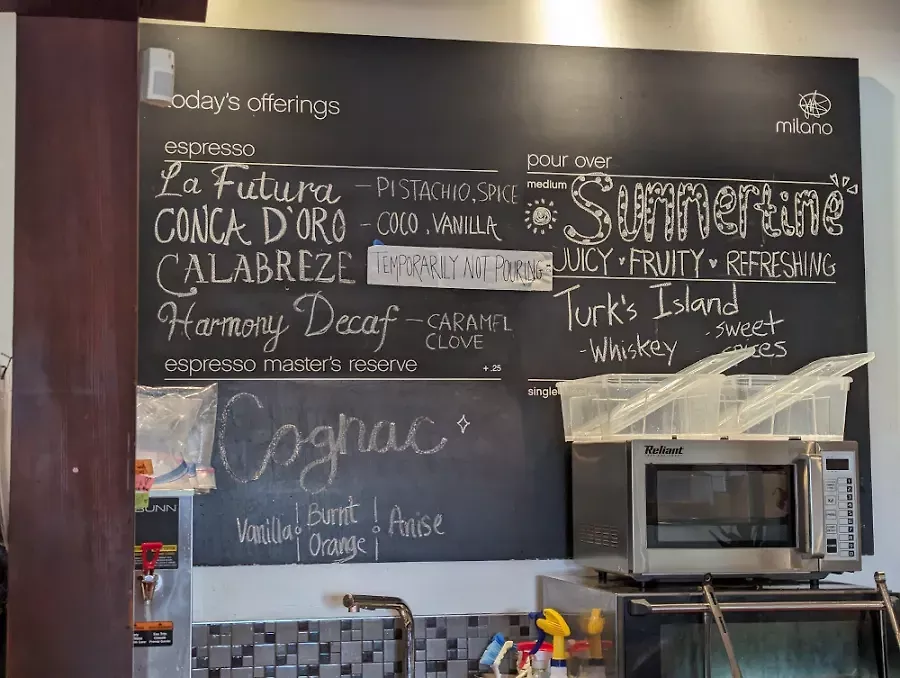 today's offerings
milano
espresso
La Futura - PISTACHIO, SPICE
CONCA D'ORO - COCO, VANILLA
CALABREZE TEMPORARILY NOT POURING
Harmony Decaf - CARAMEL
CLOVE
espresso master's reserve +.25
Cognac
Vanilla Burnt Orange Anise
pour over
medium Summertime
JUICY FRUITY REFRESHING
Turk's Island
-Whiskey -sweet
spices
single
Reliant
BUNN